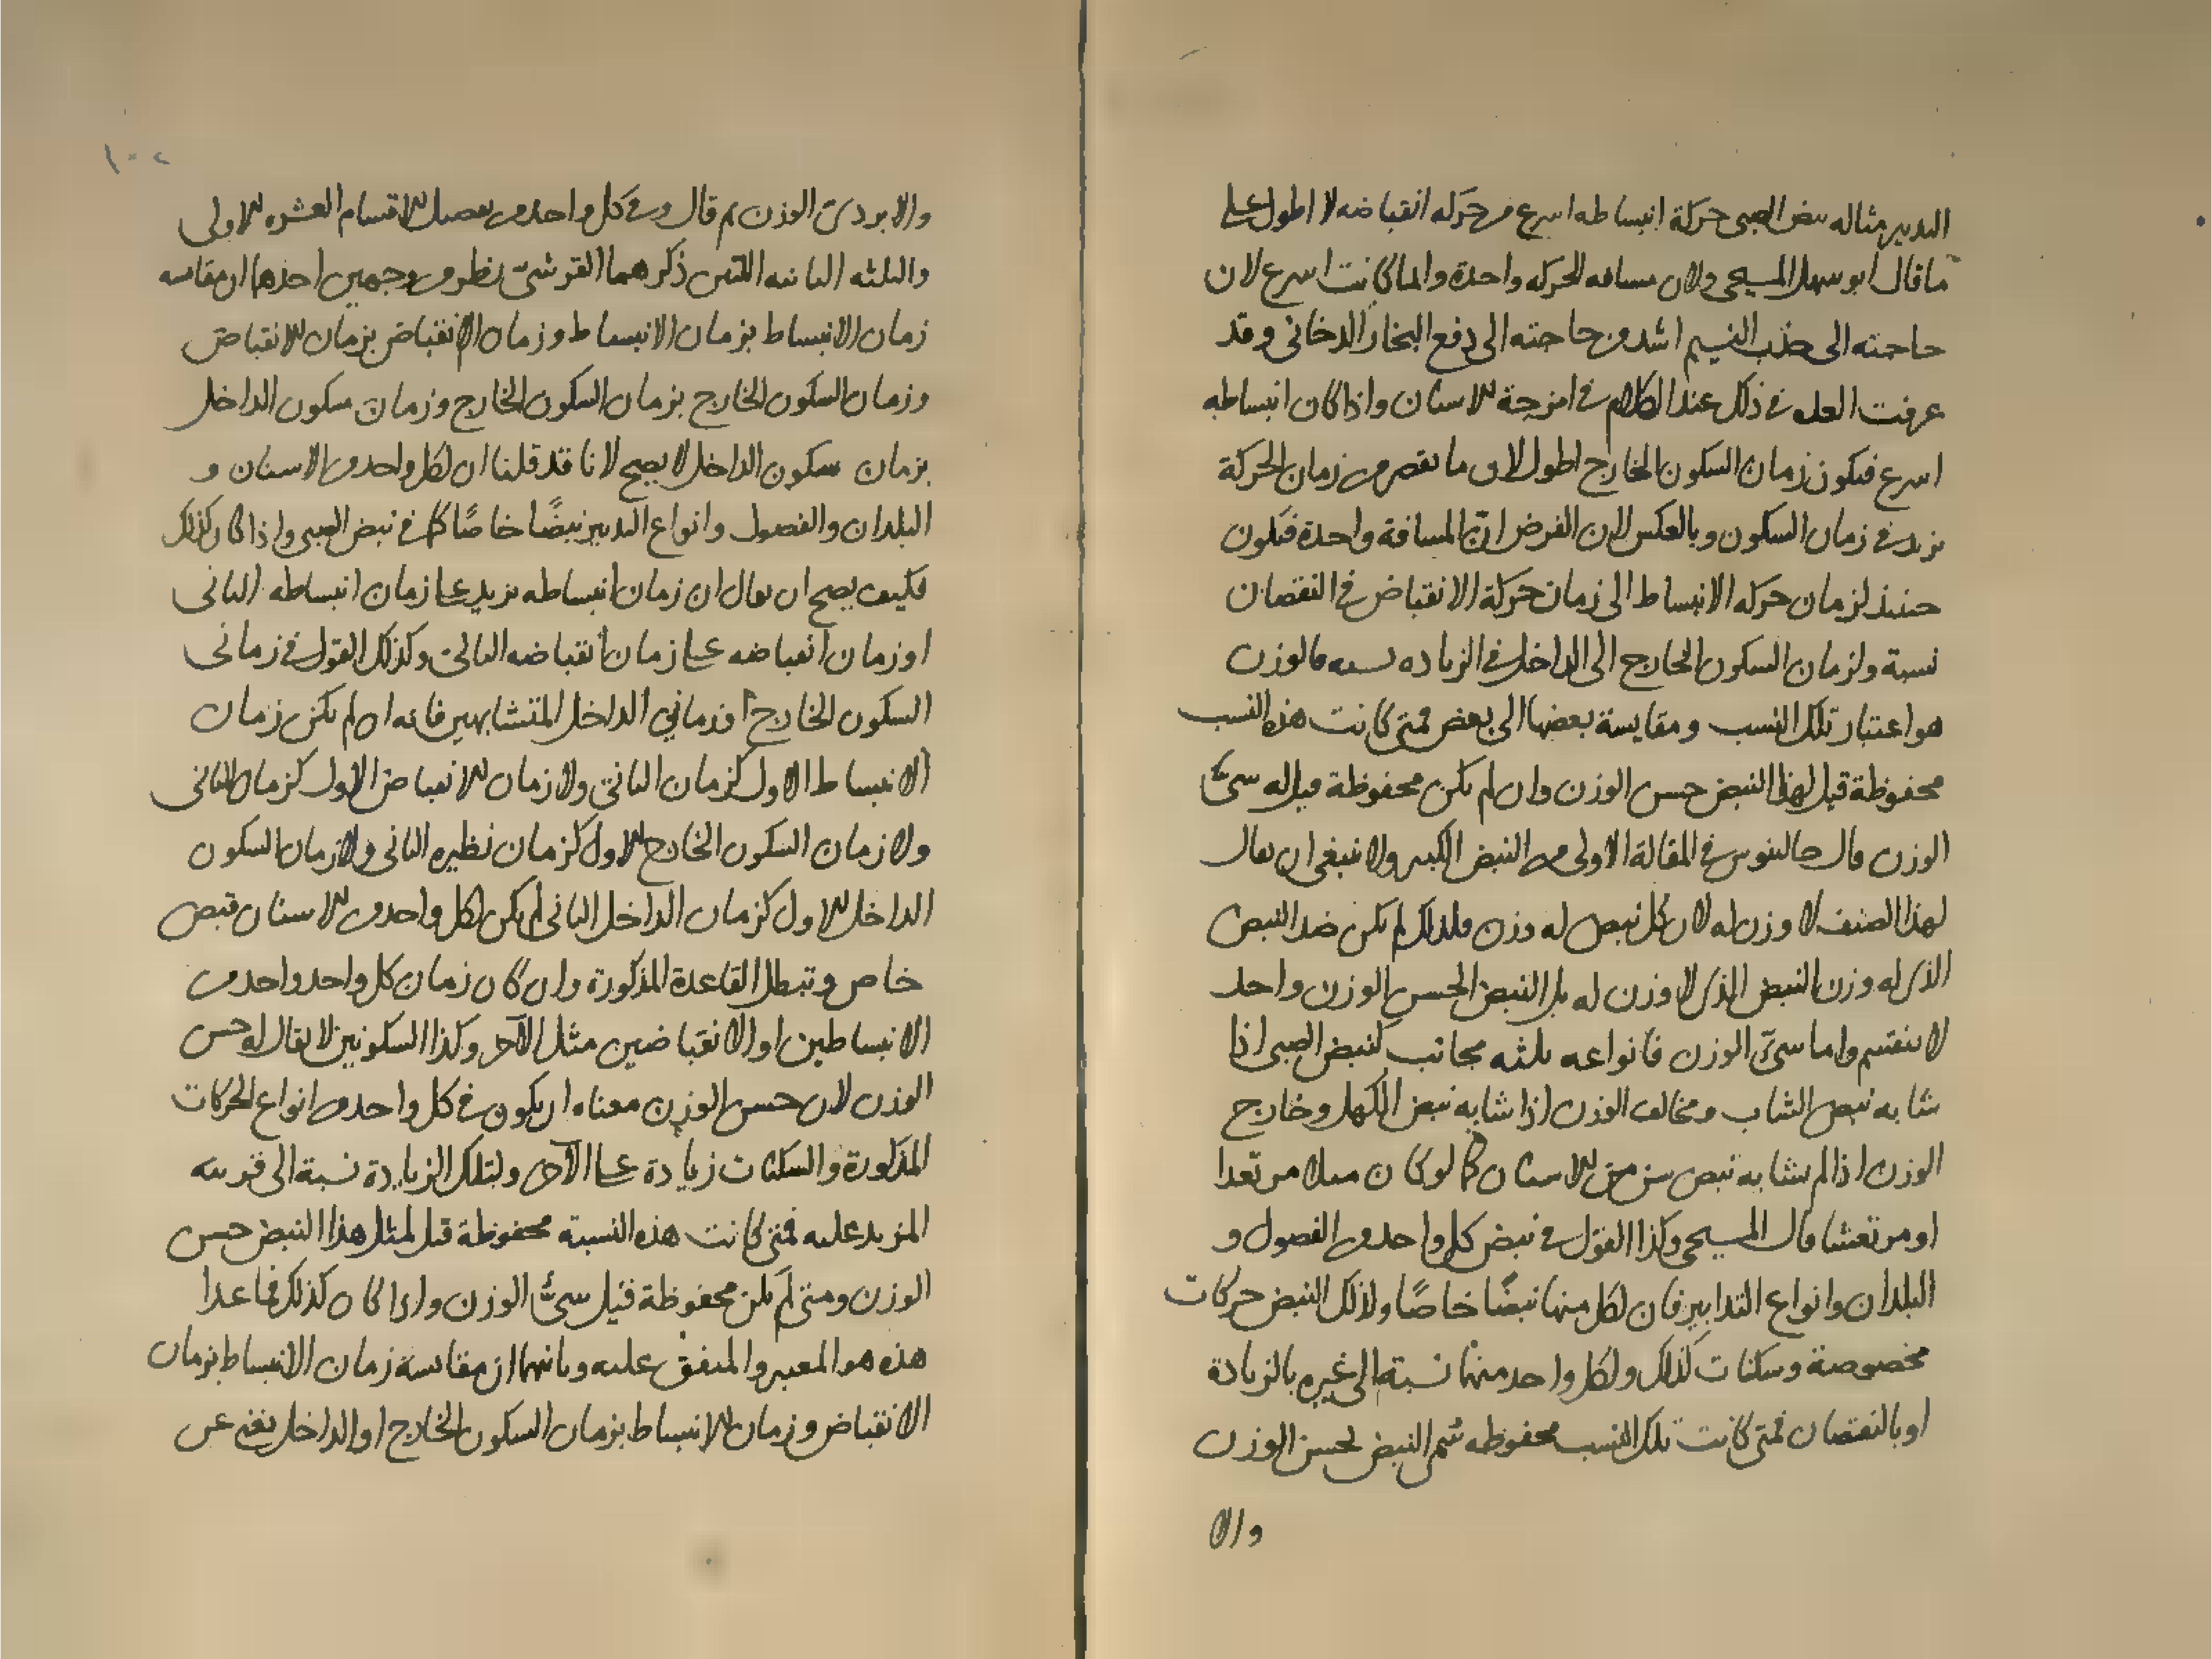 التدبير مثاله نبض الصبى حركة انبساطه اسرع من حركه انقباضه لا اطول على
ما قال ابو سهل المسيحى ولان مسافه الحركه واحدة وانما كانت اسرع لان
حاجته الى جذب النسيم اشد من حاجته الى دفع البخار الدخانى وقد
عرفت العله فى ذلك عند الكلام فى امزجة الاسنان واذا كان انبساطه
اسرع فيكون زمان السكون الخارج اطول لان ما نقص من زمان الحركة
يزيد فى زمان السكون وبالعكس لان الفرض ان المسافة واحدة فيكون
حينئذ لزمان حركه الانبساط الى زمان حركة الانقباض فى النقصان
نسبة ولزمان السكون الخارج الى الداخل فى الزياده نسبه فالوزن
هو اعتبار تلك النسب ومقايسة بعضها الى بعض فمتى كانت هذه النسب
محفوظة قيل لهذا النبض حسن الوزن وان لم يكن محفوظة قيل له سىّء
الوزن قال جالينوس فى المقالة الاولى من النبض الكبير ولا ينبغى ان يقال
لهذا الصنف لا وزن له لان كل نبض له وزن ولذلك لم يكن ضد النبض
الذى له وزن النبض الذى لا وزن له بل النبض الحسن الوزن واحد
لا ينقسم واما سىّء الوزن فانواعه ثلثه مجانب كنبض الصبى اذا
شابه نبض الشاب ومخالف الوزن اذا شابه نبض الكهل وخارج
الوزن اذا لم يشابه نبض سن من الاسنان كما لو كان مثلا مرتعدا
او مرتعشا قال المسيحى وكذا القول فى نبض كل واحد من الفصول و
البلدان وانواع التدابير فان لكل منها نبضًا خاصًا ولذلك النبض حركات
مخصوصة وسكنات كذلك ولكل واحد منها نسبة الى غيره بالزيادة
او بالنقصان فمتى كانت تلك النسب محفوظه سمى النبض لحسن الوزن
والا
١٠٢
والا بردىّ الوزن ثم قال وفى كل واحد من تفصيل الاقسام العشره الاولى
والثلثه الثانيه اللتين ذكرهما القرشىّ نظر من وجهين احدهما ان مقايسه
زمان الانبساط بزمان الانبساط وزمان الانقباض بزمان الانقباض
وزمان السكون الخارج بزمان السكون الخارج وزمان سكون الداخل
بزمان سكون الداخل لا يصح لانا قد قلنا ان لكل واحد من الاسنان و
البلدان والفصول وانواع التدبير نبضًا خاصًا كما فى نبض الصبى واذا كان كذلك
فكيف يصح ان يقال ان زمان انبساطه يزيد على زمان انبساطه الثانى
او زمان انقباضه على زمان انقباضه الثانى وكذلك القول فى زمانى
السكون الخارج او زمانى الداخل المتشابهين فانه ان لم يكن زمان
الانبساط الاول كزمان الثانى ولا زمان الانقباض الاول كزمان الثانى
ولا زمان السكون الخارج الاول كزمان نظيره الثانى ولا زمان السكون
الداخل الاول كزمان الداخل الثانى لم يكن لكل واحد من الاسنان نبض
خاص وتبطل القاعدة المذكورة وان كان زمان كل واحد واحد من
الانبساطين او الانقباضين مثل الآخر وكذا السكونين لا يقال له حسن
الوزن لان حسن الوزن معناه ان يكون فى كل واحد من انواع الحركات
المذكورة والسكنات زيادة على الآخر ولتلك الزيادة نسبة الى قرينه
المزيد عليه فمتى كانت هذه النسبته محفوظة قيل لمثل هذا النبض حسن
الوزن ومتى لم يكن محفوظة قيل سىّء الوزن واذا كان كذلك فما عدا
هذه هو المعبر والمتفق عليه وثانيهما ان مقايسة زمان الانبساط بزمان
الانقباض وزمان الانبساط بزمان السكون الخارج او الداخل يغنى عن